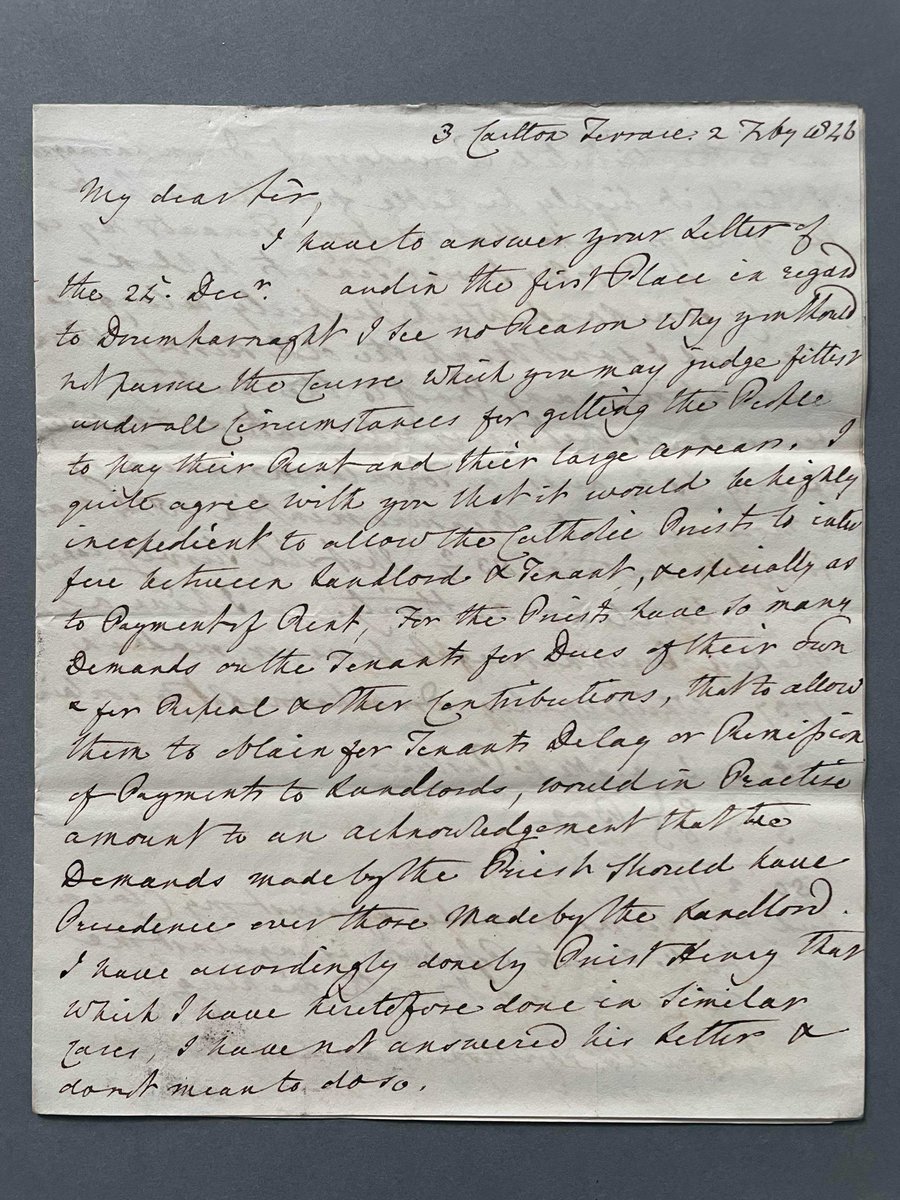 3 Carlton Terrace: 2 Feby 1846
My dear Sir,
I have to answer your Letter of
the 24. Decr. and in the first Place in regard
to Drumharnaght I see no Reason why you should
not pursue the Course which you may judge fittest
under all Circumstances for getting the People
to pay their Rent and their large arrears. I
quite agree with you that it would be highly
inexpedient to allow the Catholic Priests to inter
fere between Landlord & Tenant, & especially as
to Payment of Rent, For the Priests have so many
Demands on the Tenants for Dues of their own
& for Repeal & other Contributions, that to allow
them to obtain for Tenants Delay or Remission
of Payments to Landlords, would in Practise
amount to an acknowledgement that the
Demands made by the Priests should have
Precedence over those made by the Landlord.
I have accordingly done by Priest Henry that
which I have heretofore done in Similar
cases, I have not answered his Letter &
do not mean to do so.